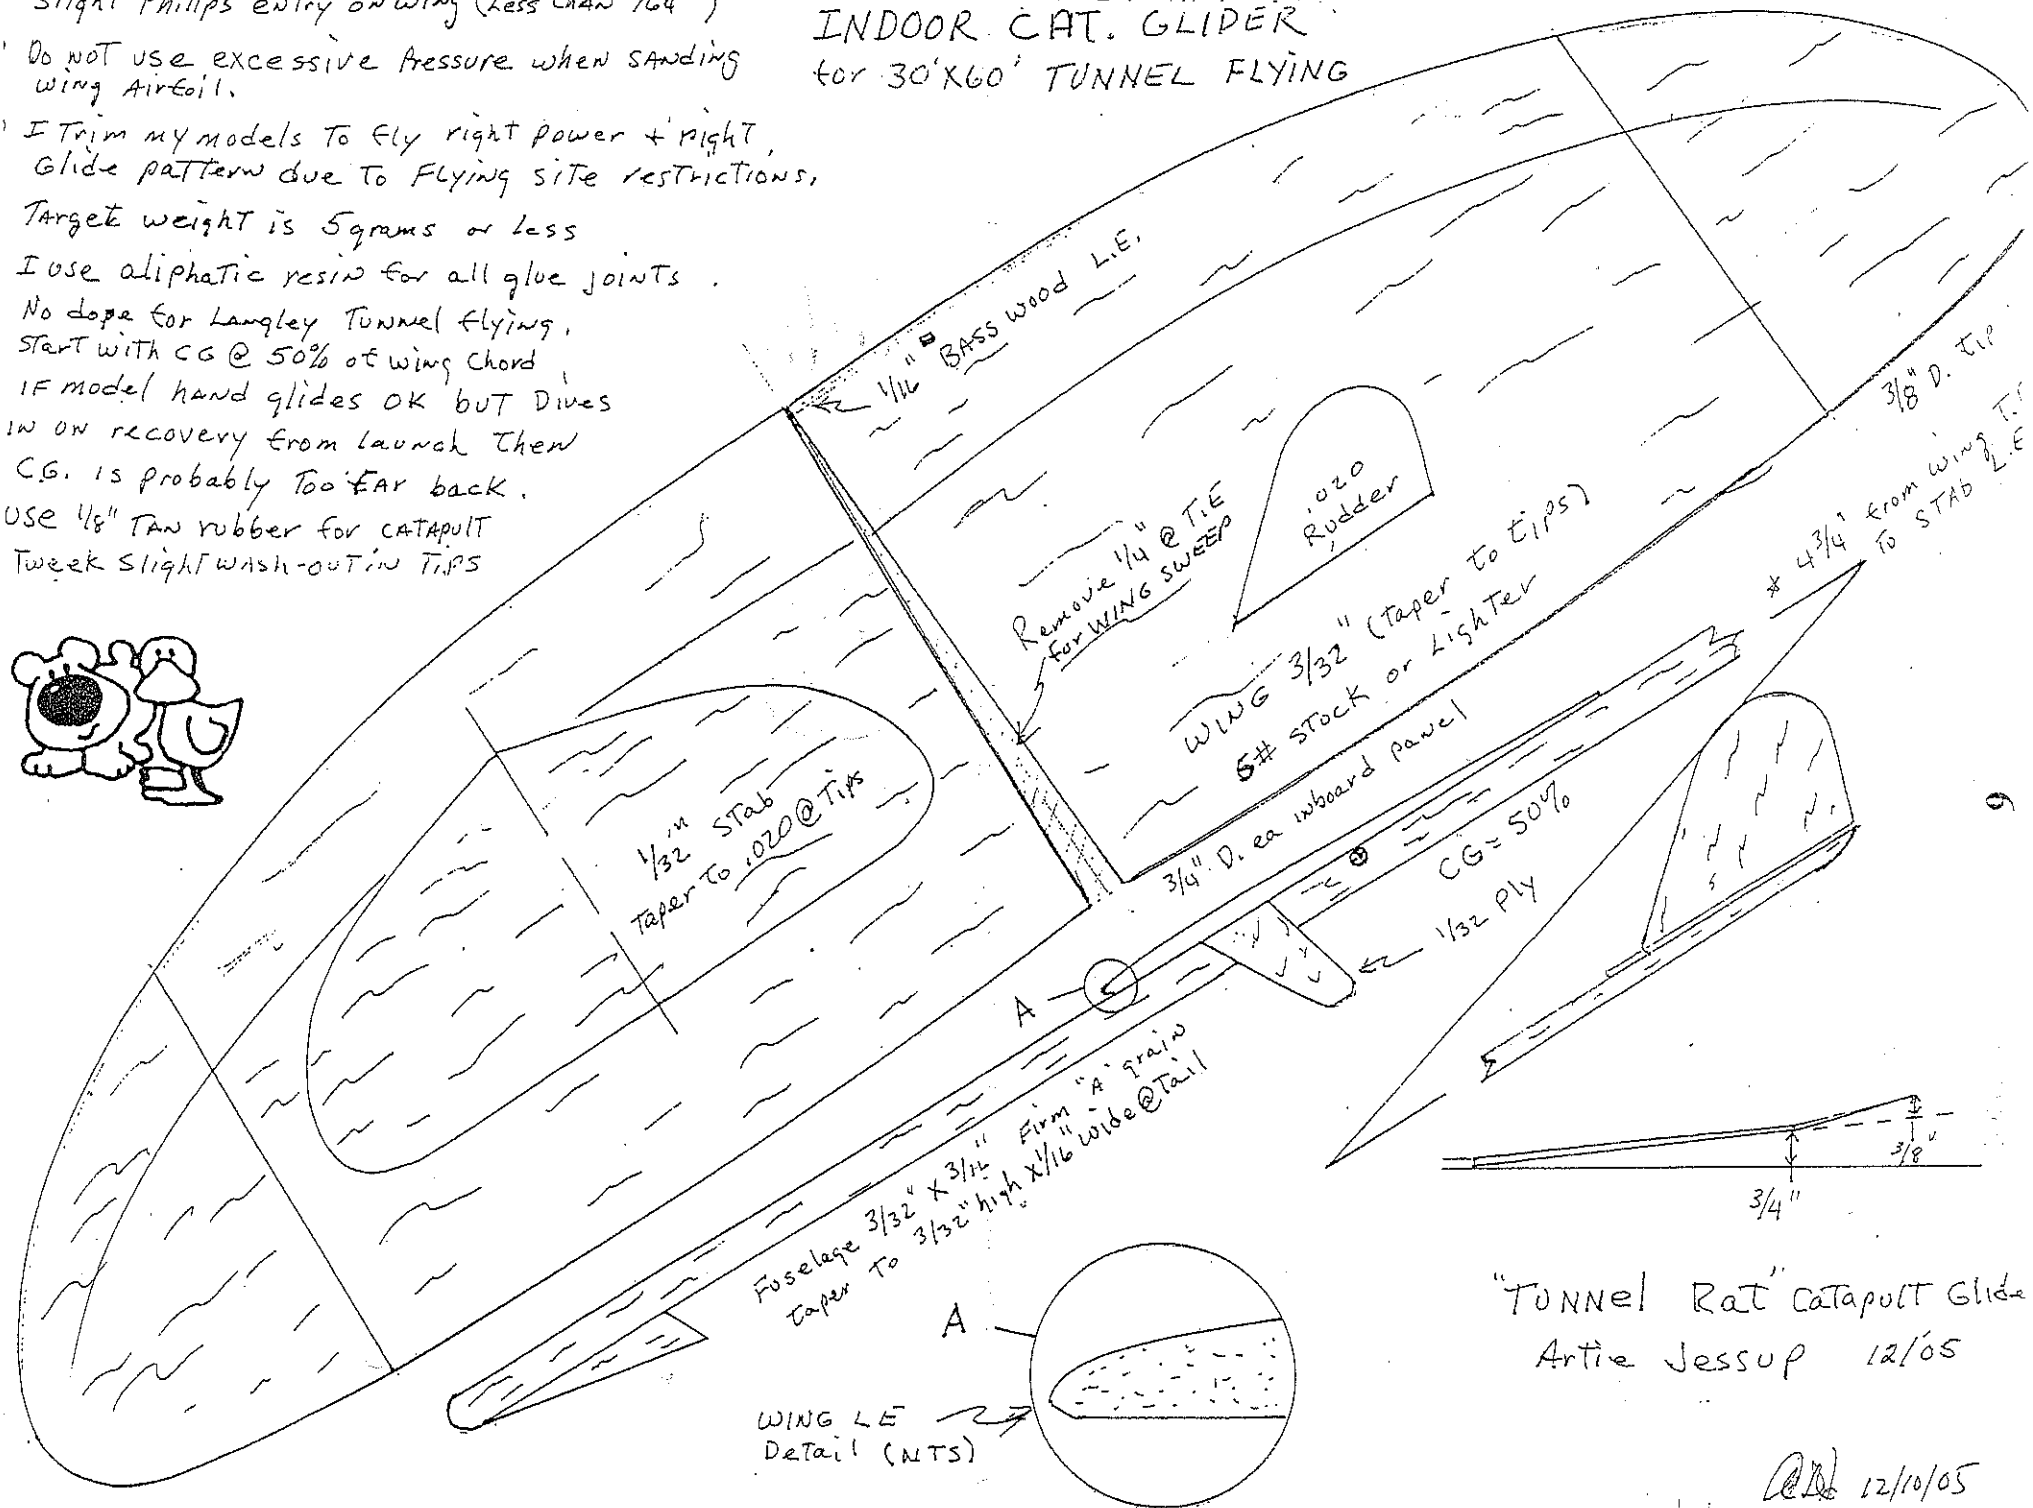 Slight Phillips entry on wing (Less than 1/64")
Do NOT use excessive Pressure when SANding
wing Airfoil.
I Trim my models To fly right power + right
Glide pattern due To Flying site restrictions,
TArget weight is 5 grams or Less
I use aliphatic resin for all glue joints.
No dope for Langley Tunnel flying.
Start with CG @ 50% of wing Chord
IF model hAND glides OK buT Dives
IN ON recovery from Launch Then
C.G. is probably Too FAr back.
Use 1/8" TAN rubber for CATAPULT
Tweek Slight WASH-OUT in Tips
INDOOR CAT. GLIDER
for 30'X60' TUNNEL FLYING
1/16" BASS wood L.E.
3/8" D. tip
* 4 3/4" from wing
To STAB L.E
.020
Rudder
Remove 1/4" @ T.E
for WING SWEEP
WING 3/32" (taper to tips)
5# STOCK or Lighter
3/4" D. ea inboard panel
CG = 50%
1/32 Ply
6
1/32" STab
Taper To .020 @ Tips
A
Fuselage 3/32" X 3/16" Firm "A" grain
taper To 3/32" high X 1/16" wide @ Tail
3/8"
3/4"
A
WING LE
Detail (NTS)
"TUNNEl Rat" CATApulT Glide
Artie Jessup 12/05
12/10/05